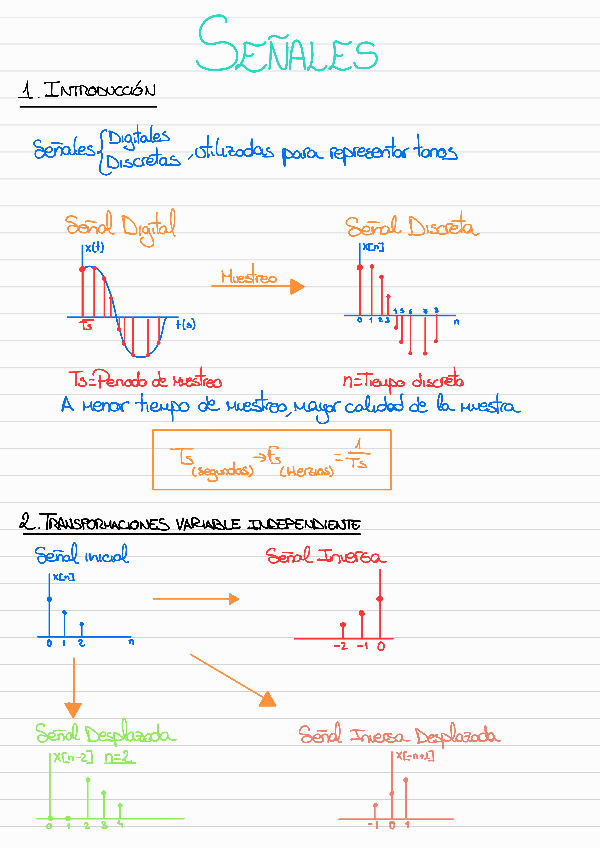 SEÑALES
1. INTRODUCCIÓN
Señales { Digitales
Discretas , utilizadas para representar tonos
Señal Digital
Señal Discreta
x(t)
x[n]
Muestreo
Ts
t(s)
0 1 2 3 4 5 6 7 8 n
Ts=Periodo de muestreo
n=Tiempo discreto
A menor tiempo de muestreo, mayor calidad de la muestra
Ts (segundos) → Fs (Herzios) = 1/Ts
2. TRANSFORMACIONES VARIABLE INDEPENDIENTE
Señal inicial
Señal Inversa
x[n]
0 1 2 n
-2 -1 0
Señal Desplazada
Señal Inversa Desplazada
x[n-2] n=2
x[-n+1]
0 1 2 3 4
-1 0 1